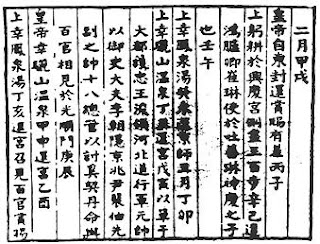 二月甲戌
皇帝自東封還賞賜有差丙子
上躬耕於興慶宮側盡三百步辛己遣
鴻臚卿崔琳使於吐蕃琳神慶之子
也壬午
上幸鳳泉湯癸未還京師丑月丁卯
上幸驪山溫泉丁亥還宮戊寅以單于
大都護忠王浚領河北道行軍元帥
以御史大夫李朝隱京兆尹裴伯先
副之帥十八總管以討奚契丹命與
百官相見於光順門庚辰
皇帝幸驪山溫泉甲申還宮乙酉
上幸鳳泉湯丁亥還宮召見百官賞賜